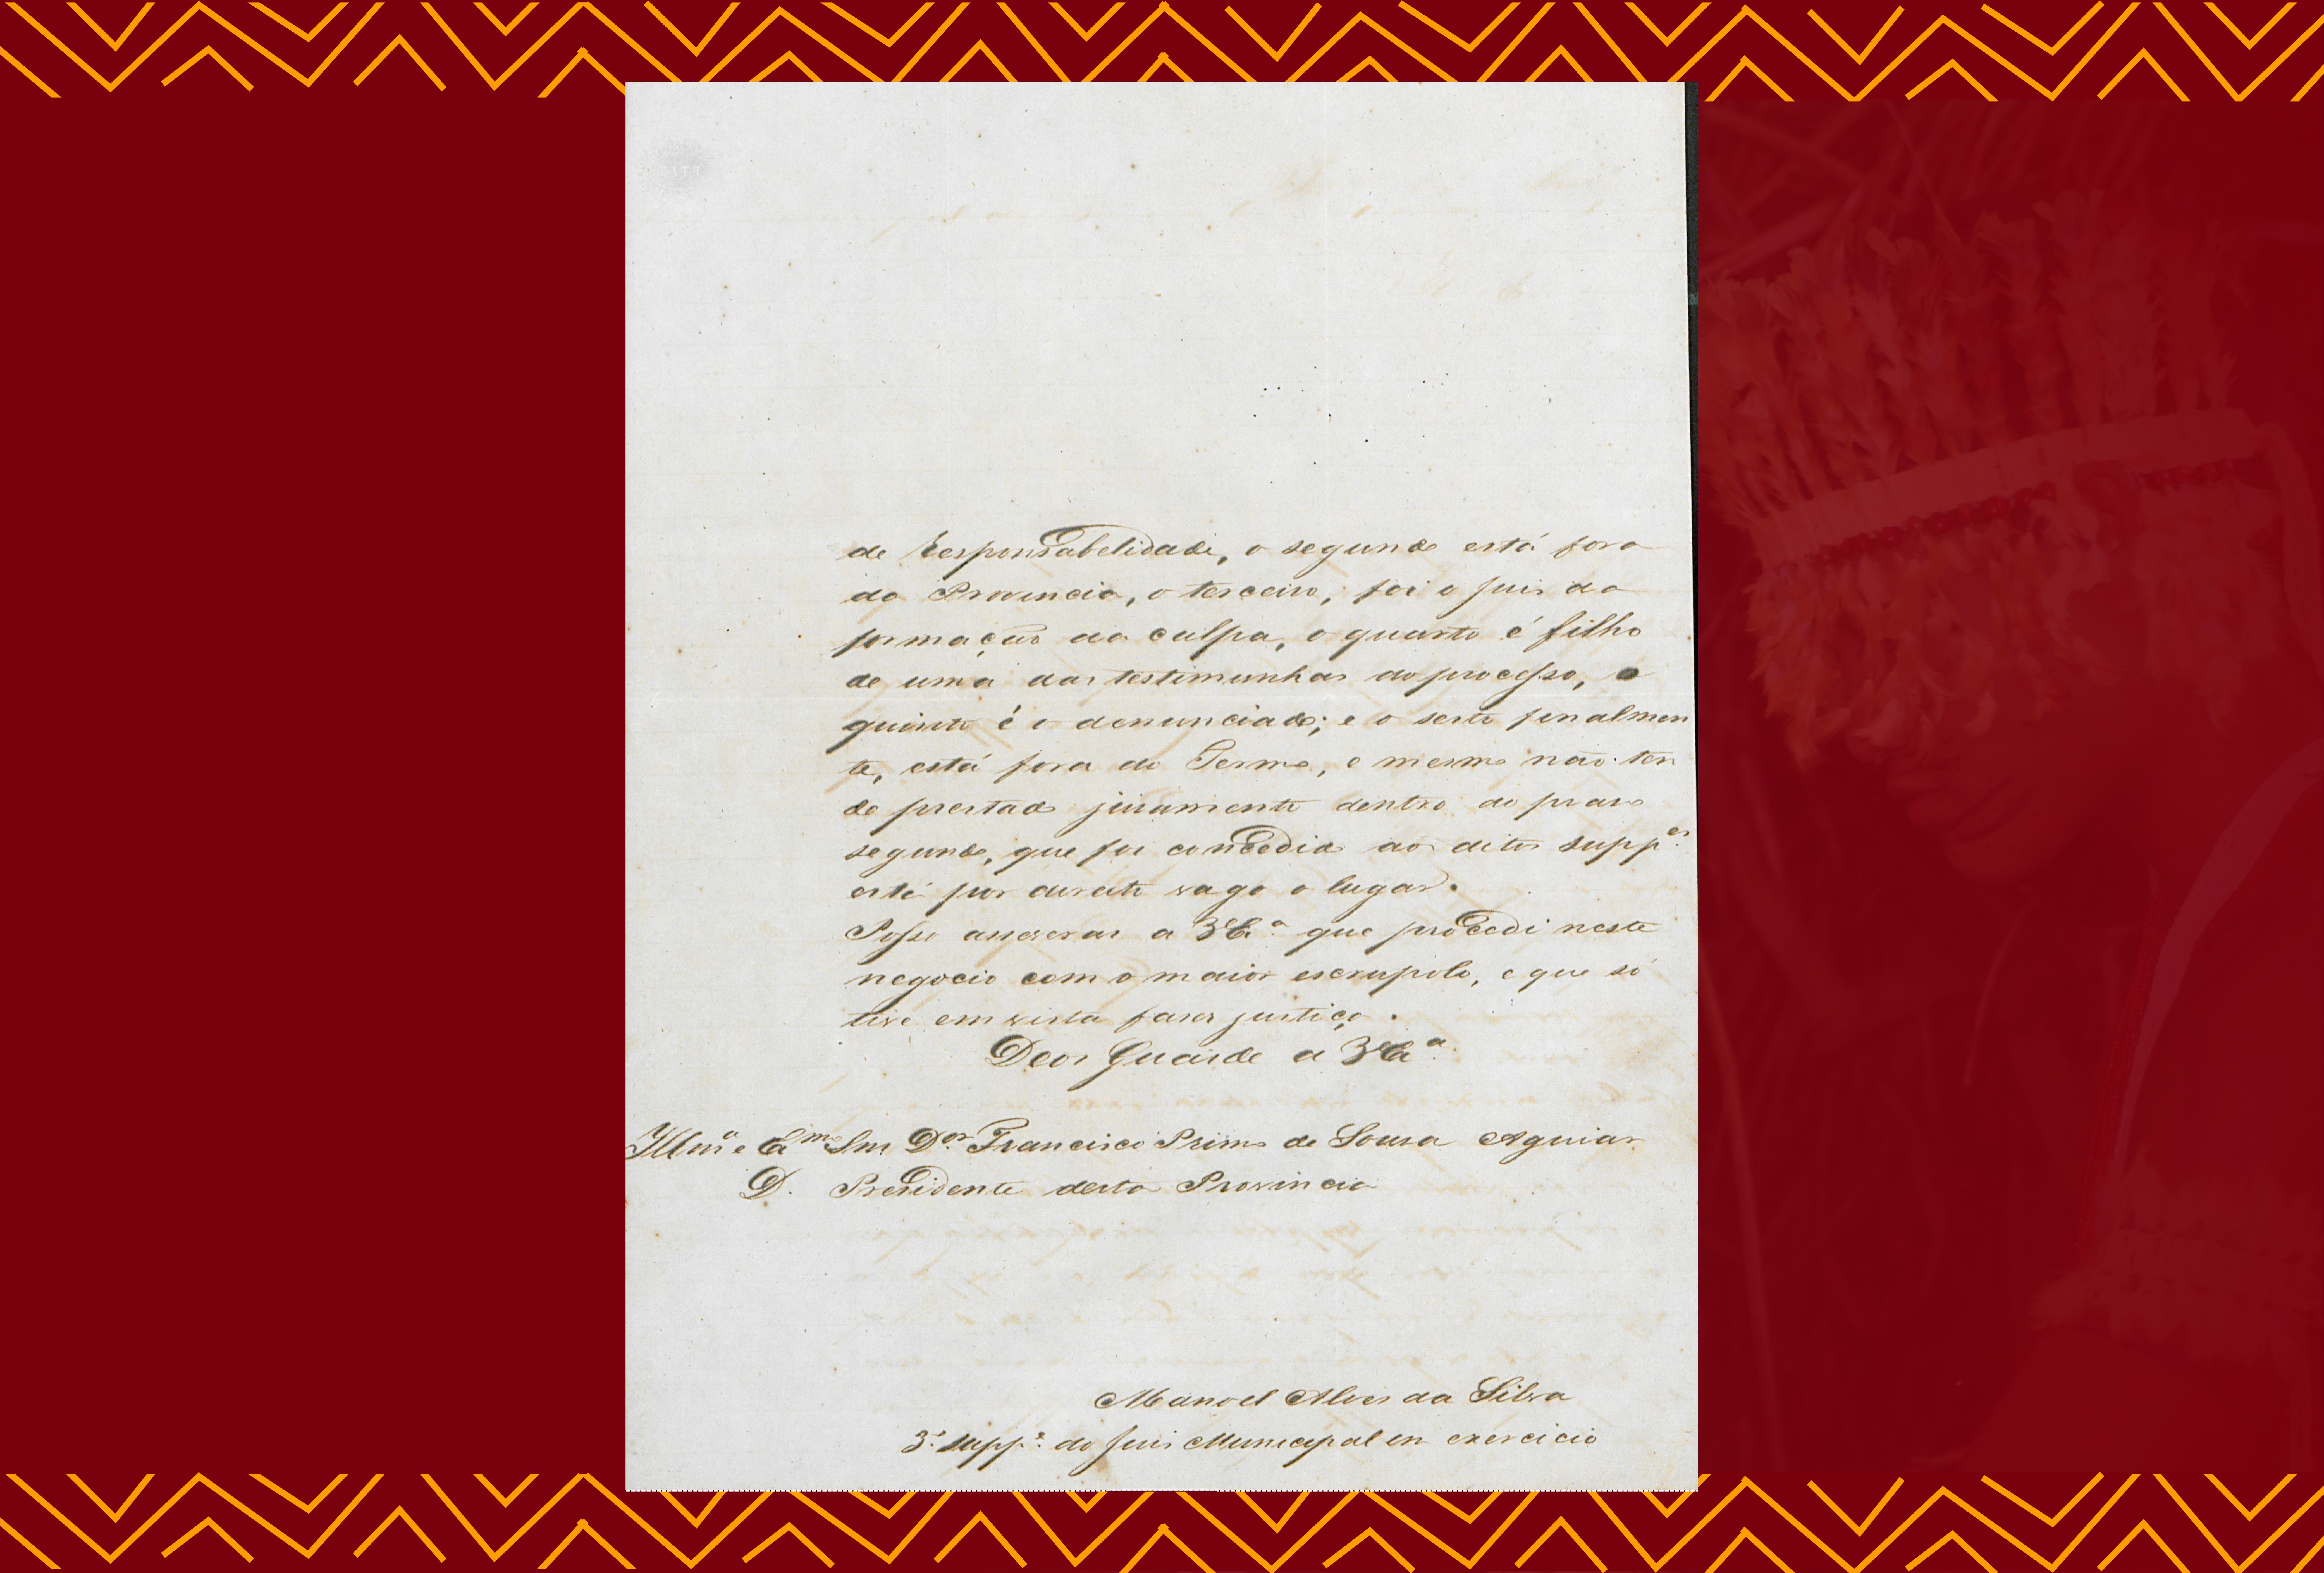 de Responsabelidade, o segundo está fora
da Provincia, o terceiro, foi o Juis da
formação da culpa, o quarto é filho
de uma das testimunhas do processo, o
quinto é o denunciado; e o sesto finalmen
te, está fora do Termo, e mesmo não ten
do prestado juramento dentro do praso
segundo, que foi concedido aos ditos suppes.
está por direito vago o lugar.
Posso asseverar a VExa. que procedi neste
negocio com o maior escrupolo, e que só
tive em vista faser justiça.
Deos Guarde a VExa.
Illmo e Exmo Snr Dor. Francisco Primo de Sousa Aguiar
D. Presidente desta Provincia
Manoel Alves da Silva
3º suppe. do Juis Municipal em exercicio